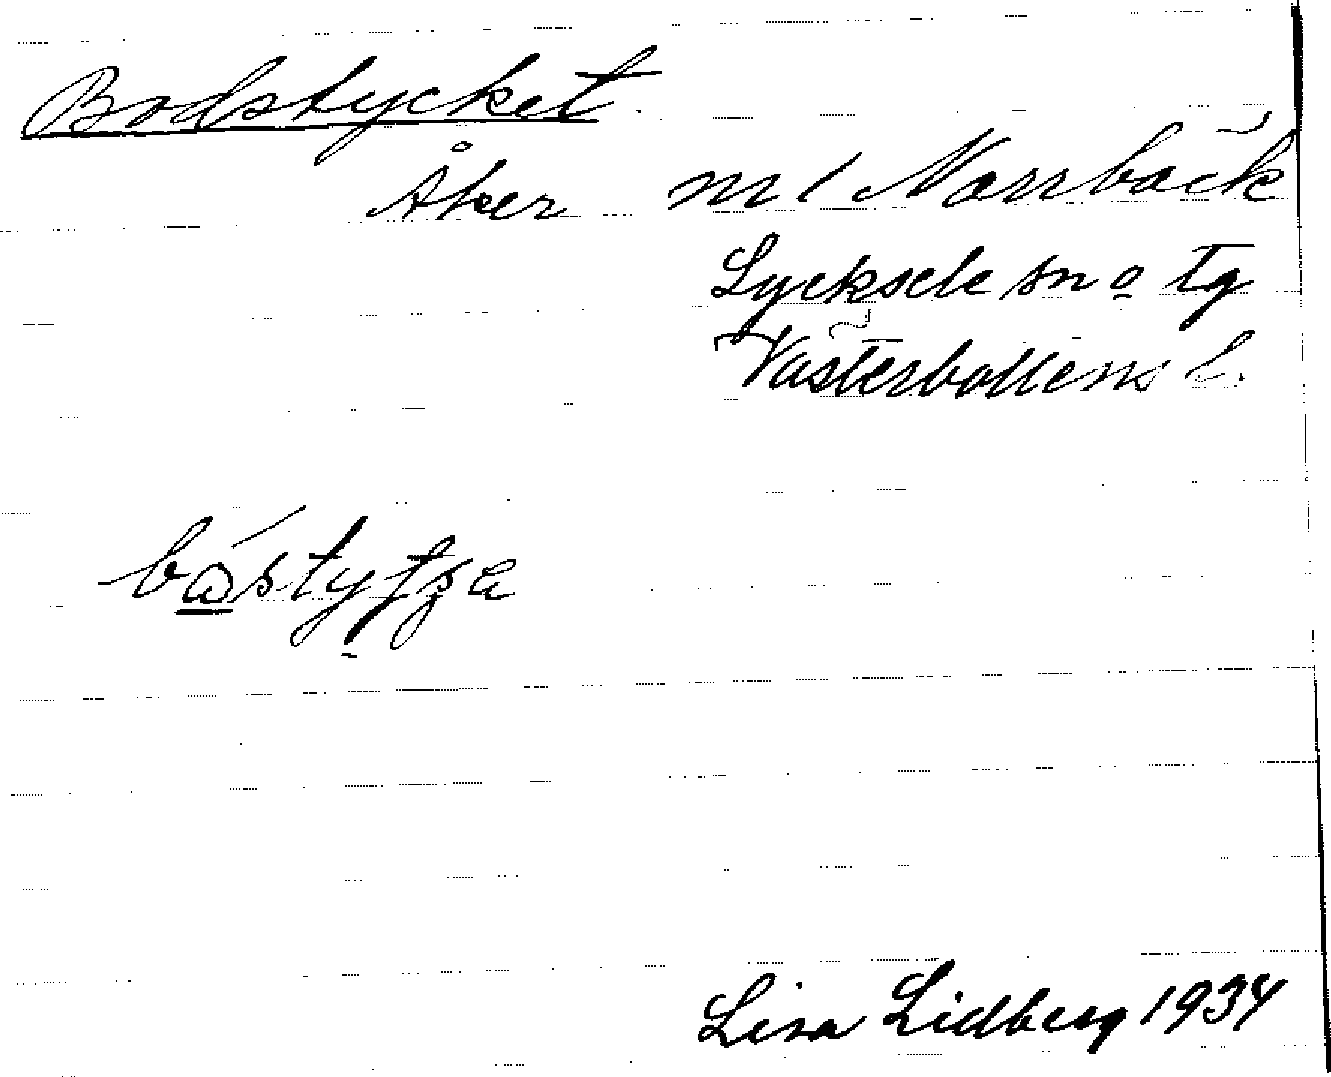 Bodstycket.
Åker m/ Norrbäck
Lycksele sn o tg
Västerbottens l.
Lisa Lidberg 1934